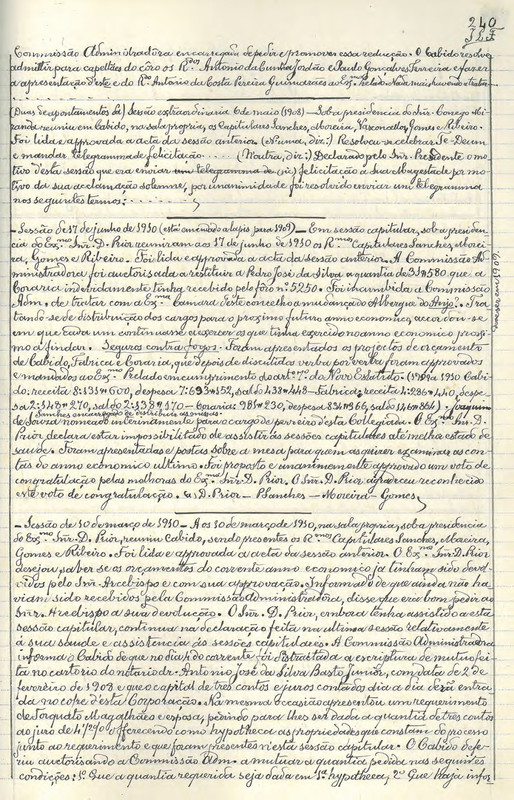 240
Commissão Administradora encarregada de pedir e promover essa reducção. O Cabido resolve
admittir para capellães do côro os R.dos Antonio da Cunha Jordão e Paulo Gonçalves Ferreira e fazer
a apresentação d'este e do R.do Antonio da Costa Pereira Guimarães ao Ex.mo Prelado. Nada mais havendo a tratar
(Duns apontamentos da) Sessão extraordinaria 6 de maio (1908) — Sob a presidencia do Snr. Conego Mi-
randa reuniu em Cabido, na sala propria, os Capitulares Sanches, Moreira, Vasconcellos, Gomes e Ribeiro.
Foi lida e approvada a acta da sessão anterior. (N'uma, diz:) Resolveu-se celebrar Te-Deum
e mandar telegramma de felicitação (N'outra, diz:) Declarado pelo Snr. Presidente o mo-
tivo d'esta sessão que era enviar um telegramma de (sic) felicitação a Sua Magestade por mo-
tivo da sua acclamação solemne, por unanimidade foi resolvido enviar um telegramma
nos seguintes termos:
— Sessão de 17 de junho de 1910 (está emendado a lapis para 1909) — Em sessão capitular, sob a presiden-
cia do Ex.mo Snr. D. Prior reuniram aos 17 de junho de 1910 os R.mos Capitulares Sanches, Morei-
ra, Gomes e Ribeiro. Foi lida e approvada a acta da sessão anterior. A Commissão Ad-
ministradora foi auctorisada a restituir a Pedro José da Silva a quantia de 33$580 que a
Coraria indevidamente tinha recebido pelo fôro nº 5250. Foi incumbida a Commissão
Adm. de tratar com a Ex.ma Camara d'este concelho a mudança do Albergue do Anjo. Tra-
tando-se da distribuição dos cargos para o proximo futuro anno economico, accordou-se
em que cada um continuasse a exercer os que tinha exercido no anno economico proxi-
mo a findar. Seguros contra fogos. Foram apresentados os projectos de orçamento
do Cabido, Fabrica e Coraria, que depois de discutidos verba por verba foram approvados
e mandados ao Ex.mo Prelado em cumprimento do art.º do Novo Estatuto. — (1909 a 1910 Cabi-
do: receita 8:131$600, despeza 7:693$152, saldo 438$448 — Fabrica: receita 4:286$440, despe-
sa 2:148$270, saldo 2:138$170 — Coraria: 981$230, despesa 834$366, saldo 146$864). Joaquim
de Souza nomeado unanimemente para o cargo de porteiro d'esta Collegiada. O Ex.mo Snr. D.
Prior declara estar impossibilitado de assistir ás sessões capitulares até melhor estado de
saude. Foram apresentadas e postas sobre a mesa para quem as quizer examinar as con-
tas do anno economico ultimo. Foi proposto e unanimemente approvado um voto de
congratulação pelas melhoras do Ex.mo Snr. D. Prior. O Snr. D. Prior agradeceu reconhecido
este voto de congratulação. a) D. Prior — P. Sanches — Moreira — Gomes
— Sessão de 10 de março de 1910 — Aos 10 de março de 1910, na sala propria, sob a presidencia
do Ex.mo Snr. D. Prior, reuniu Cabido, sendo presentes os R.mos Capitulares Sanches, Moreira,
Gomes e Ribeiro. Foi lida e approvada a acta da sessão anterior. O Ex.mo Snr. D. Prior
desejou saber se os orçamentos do corrente anno economico já tinham sido devol-
vidos pelo Snr. Arcebispo e com sua approvação. Informado de que ainda não ha-
viam sido recebidos pela Commissão Administradora, disse que era bom pedir ao
Snr. Arcebispo a sua devolução. O Snr. D. Prior, embora tenha assistido a esta
sessão capitular, continua na declaração feita na ultima sessão relativamente
á sua saúde e assistencia ás sessões capitulares. A Commissão Administradora
informa o Cabido de que no dia do corrente foi distractada a escriptura de mutuo fei-
ta no cartorio do notario dr. Antonio José da Silva Basto Junior, com data de 2 de
fevereiro de 1903 e que o capital de tres contos e juros contados dia a dia dera entra-
da no cofre d'esta Corporação. Na mesma occasião apresentou um requerimento
de Torquato Magalhães e esposa, pedindo para lhes ser dada a quantia de tres contos
ao juro de 4 1/2 % offerecendo como hypotheca as propriedades que constam do processo
junto ao requerimento e que foram presentes n'esta sessão capitular. O Cabido defe-
riu auctorisando a Commissão Adm. a mutuar a quantia pedida nas seguintes
condições: 1º Que a quantia requerida seja dada em 1ª hypotheca, 2º Que haja infor